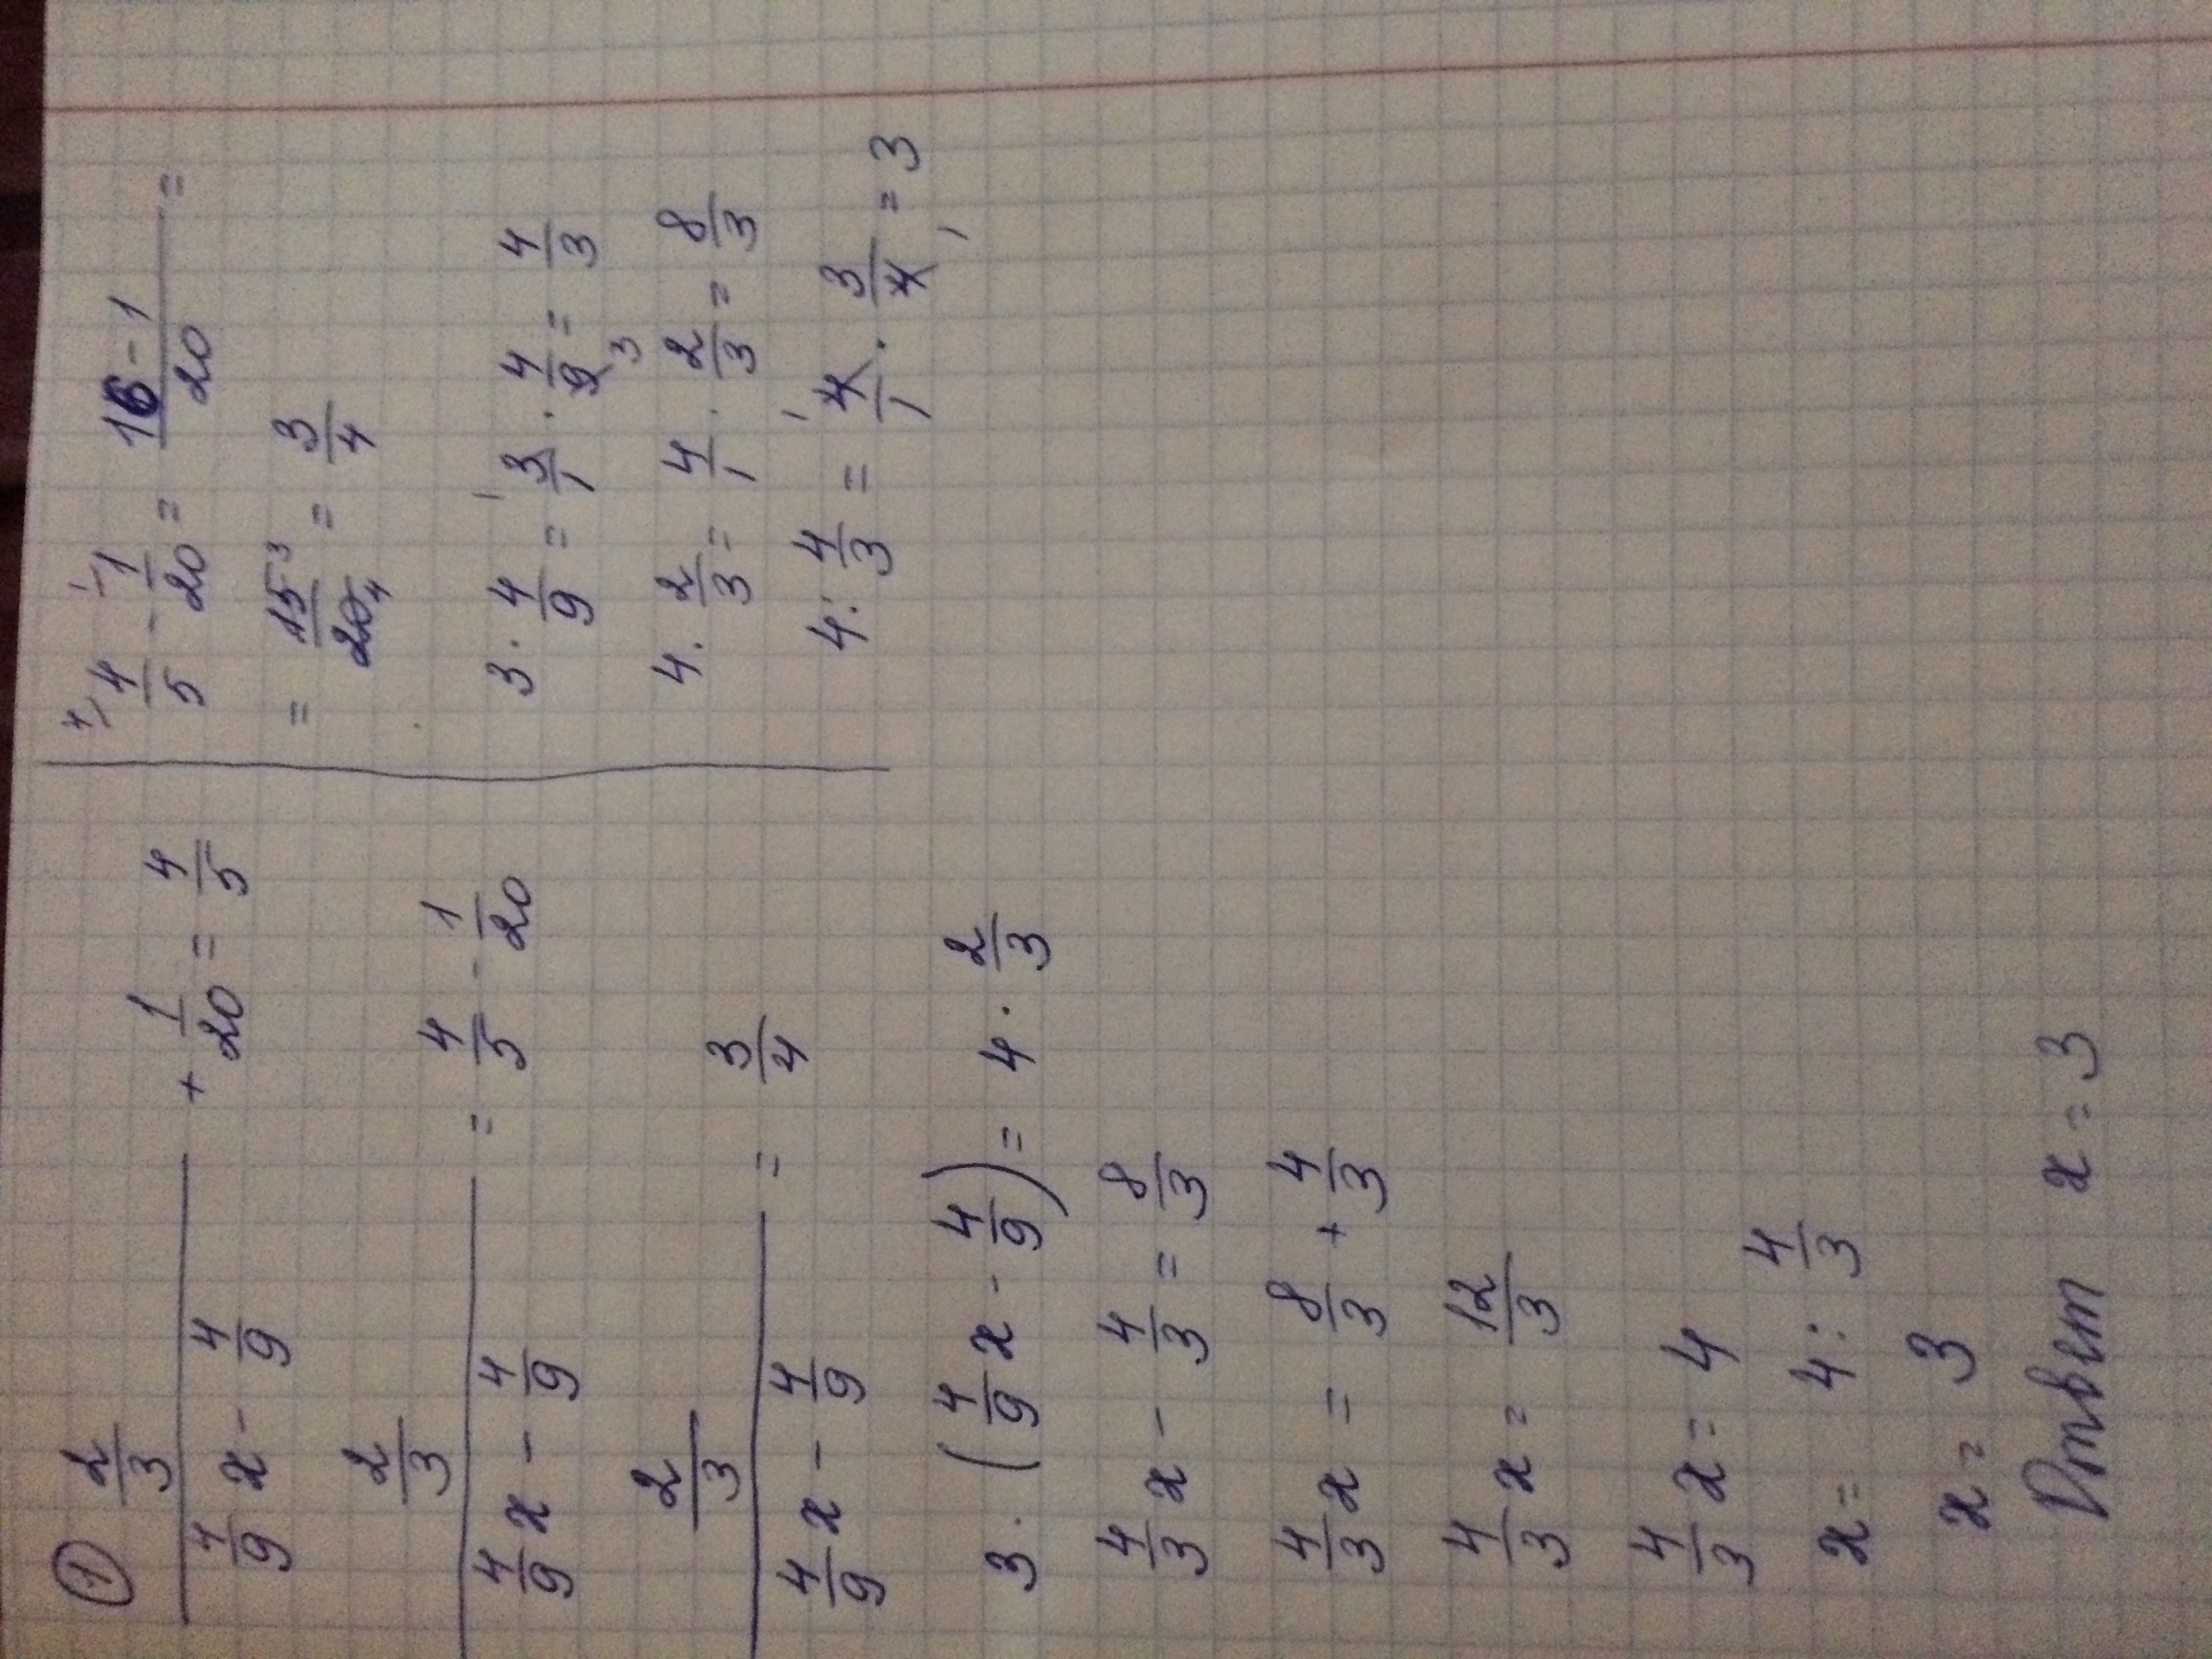 ① 2/3 / (4/9 x - 4/9) + 1/20 = 4/5
2/3 / (4/9 x - 4/9) = 4/5 - 1/20
2/3 / (4/9 x - 4/9) = 3/4
3 · (4/9 x - 4/9) = 4 · 2/3
4/3 x - 4/3 = 8/3
4/3 x = 8/3 + 4/3
4/3 x = 12/3
4/3 x = 4
x = 4 : 4/3
x = 3
Ответ x = 3
4/5 - 1/20 = (16 - 1)/20 =
= 15/20 = 3/4
3 · 4/9 = 3/1 · 4/9 = 4/3
4 · 2/3 = 4/1 · 2/3 = 8/3
4 : 4/3 = 4/1 · 3/4 = 3